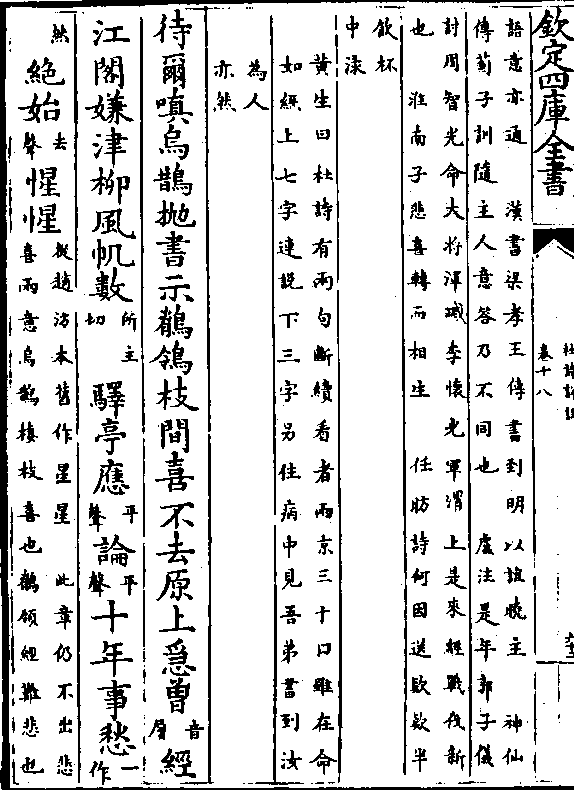 欽定四庫全書
杜詩詳註
卷十八
語意亦通　漢書梁孝王傳書到明以誼曉主　神仙
傳薊子訓隨主人意答乃不同也　盧注是年郭子儀
討周智光命大將渾瑊李懷光軍渭上是來經戰伐新
也　淮南子悲喜轉而相生　任昉詩何因送款款半
飲杯
中淥
黄生曰杜詩有兩句斷續看者兩京三十口雖在命
如絲上七字連說下三字另住病中見吾弟書到汝
為人
亦然
待爾嗔烏鵲抛書示鶺鴒枝間喜不去原上急曾音層經
江閣嫌津柳風帆數所主切驛亭應平聲論平聲十年事愁一作
然絶始去聲惺惺從趙汸本舊作星星　此章仍不出悲
喜兩意烏鵲棲枝喜也鶺領經難悲也